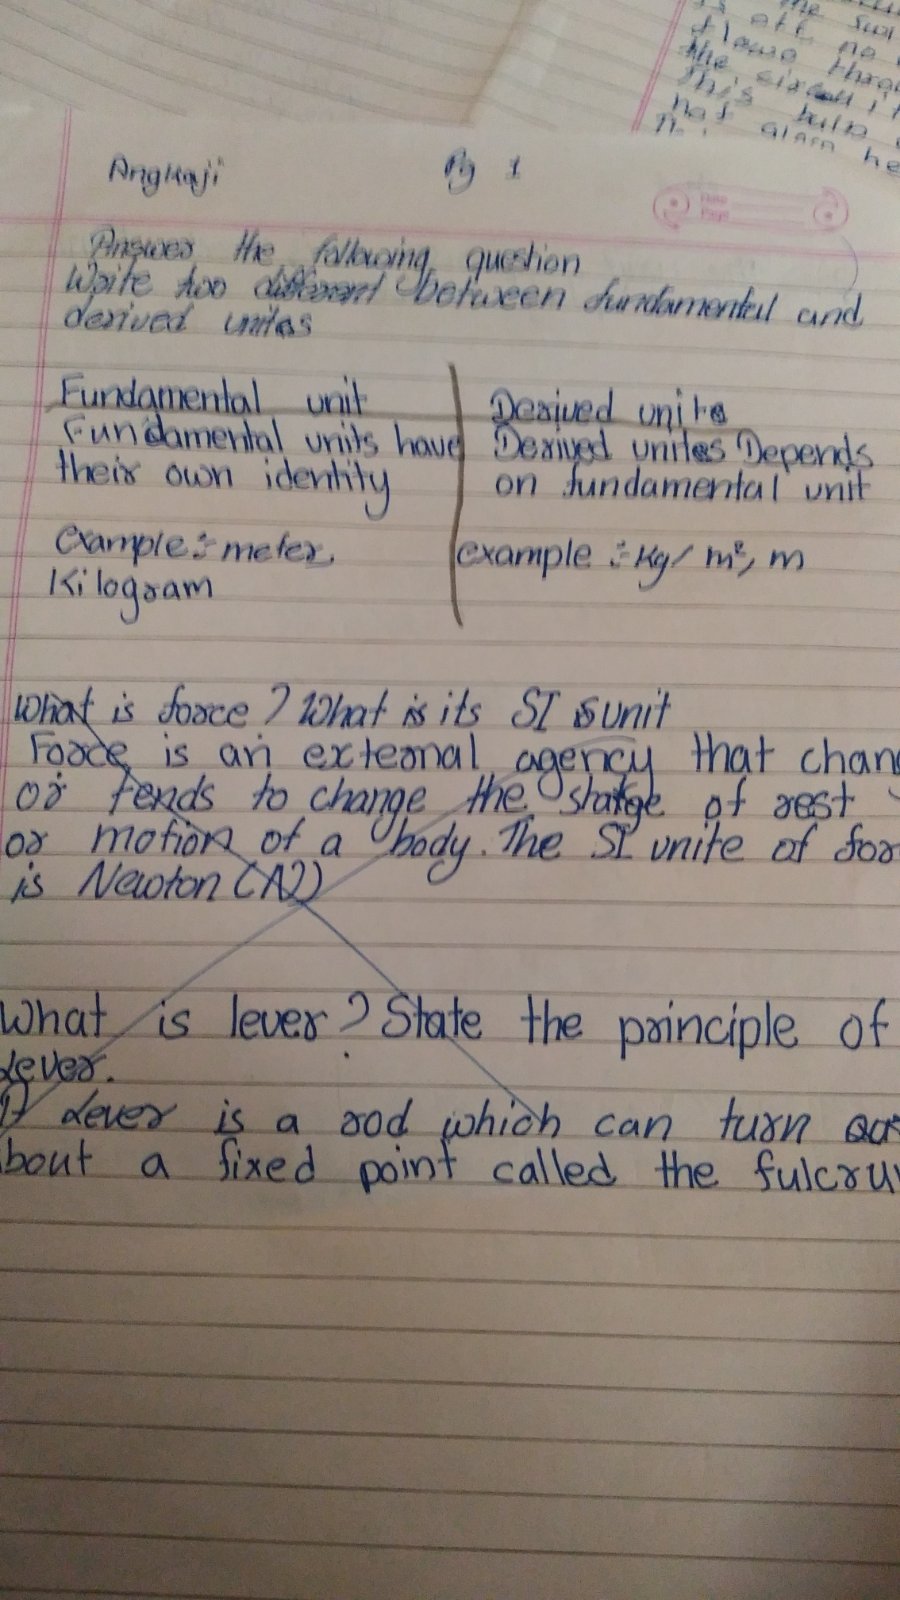 is off no
flows thro
the
This bulb
not glow he
Angkaji Pg 1
Answer the following question
Write two different between fundamental and
derived unites
Fundamental unit
Fundamental units have
their own identity
example :- meter,
Kilogram
Derived units
Derived unites Depends
on fundamental unit
example :- Kg/ m², m
What is force? What is its SI unit
Force is an external agency that chan
or tends to change the state of rest
or motion of a body. The SI unite of for
is Newton (N)
What is lever? State the principle of
Lever.
Lever is a rod which can turn
bout a fixed point called the fulcru